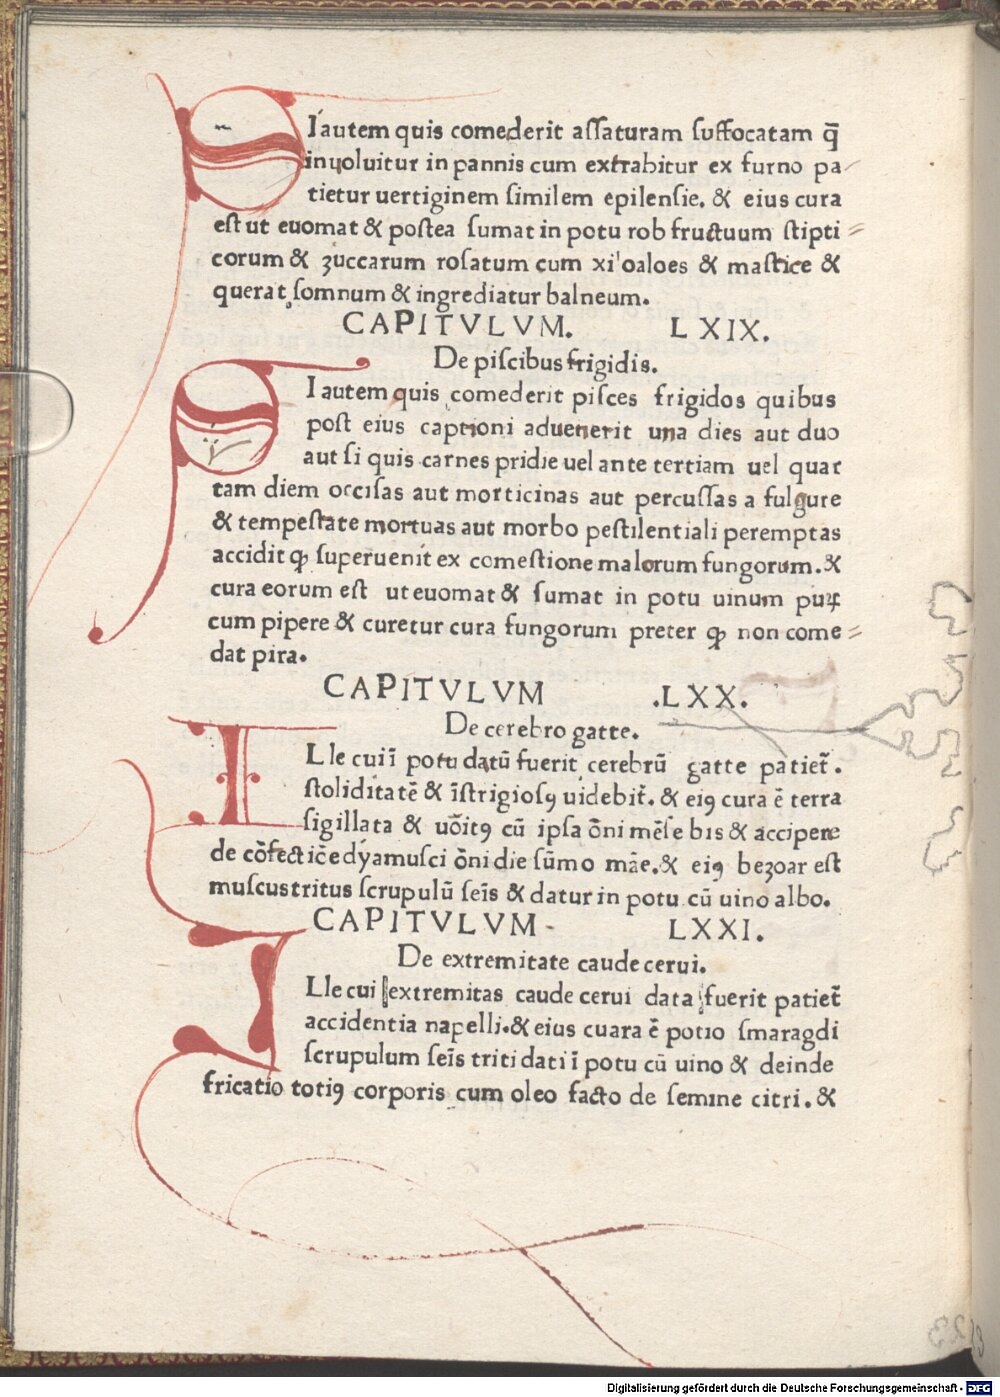 SI autem quis comederit aſſaturam ſuffocatam q̄
inuoluitur in pannis cum extrahitur ex furno pa⸗
tietur uertiginem ſimilem epilenſie. & eius cura
eſt ut euomat & poſtea ſumat in potu rob fructuum ſtipti⸗
corum & ʒuccarum roſatum cum xi'oaloes & maſtice &
querat ſomnum & ingrediatur balneum.
CAPITVLVM. LXIX.
De piſcibus frigidis.
SI autem quis comederit piſces frigidos quibus
poſt eius captioni aduenerit una dies aut duo
aut ſi quis carnes pridie uel ante tertiam uel quar
tam diem occiſas aut morticinas aut percuſſas a fulgure
& tempeſtate mortuas aut morbo peſtilentiali peremptas
accidit ꝙ ſuperuenit ex comeſtione malorum fungorum. &
cura eorum eſt ut euomat & ſumat in potu uinum puꝝ
cum pipere & curetur cura fungorum preter ꝙ non come⸗
dat pira.
CAPITVLVM .LXX.
De cerebro gatte.
ILle cui ī potu datū fuerit cerebrū gatte patiet̄.
ſtoliditatē & īſtrigioſꝯ uidebit̄. & eiꝯ cura ē terra
ſigillata & uōitꝯ cū ipſa ōni mēſe bis & accipere
de cōfectiōe dyamuſci ōni die ſūmo māe. & eiꝯ beʒoar eſt
muſcus tritus ſcrupulū ſeīs & datur in potu cū uino albo.
CAPITVLVM LXXI.
De extremitate caude cerui.
ILle cui extremitas caude cerui data fuerit patiet̄
accidentia napelli. & eius cuara ē potio ſmaragdi
ſcrupulum ſeīs triti dati ī potu cū uino & deinde
fricatio totiꝯ corporis cum oleo facto de ſemine citri. &
Digitalisierung gefördert durch die Deutsche Forschungsgemeinschaft - DFG